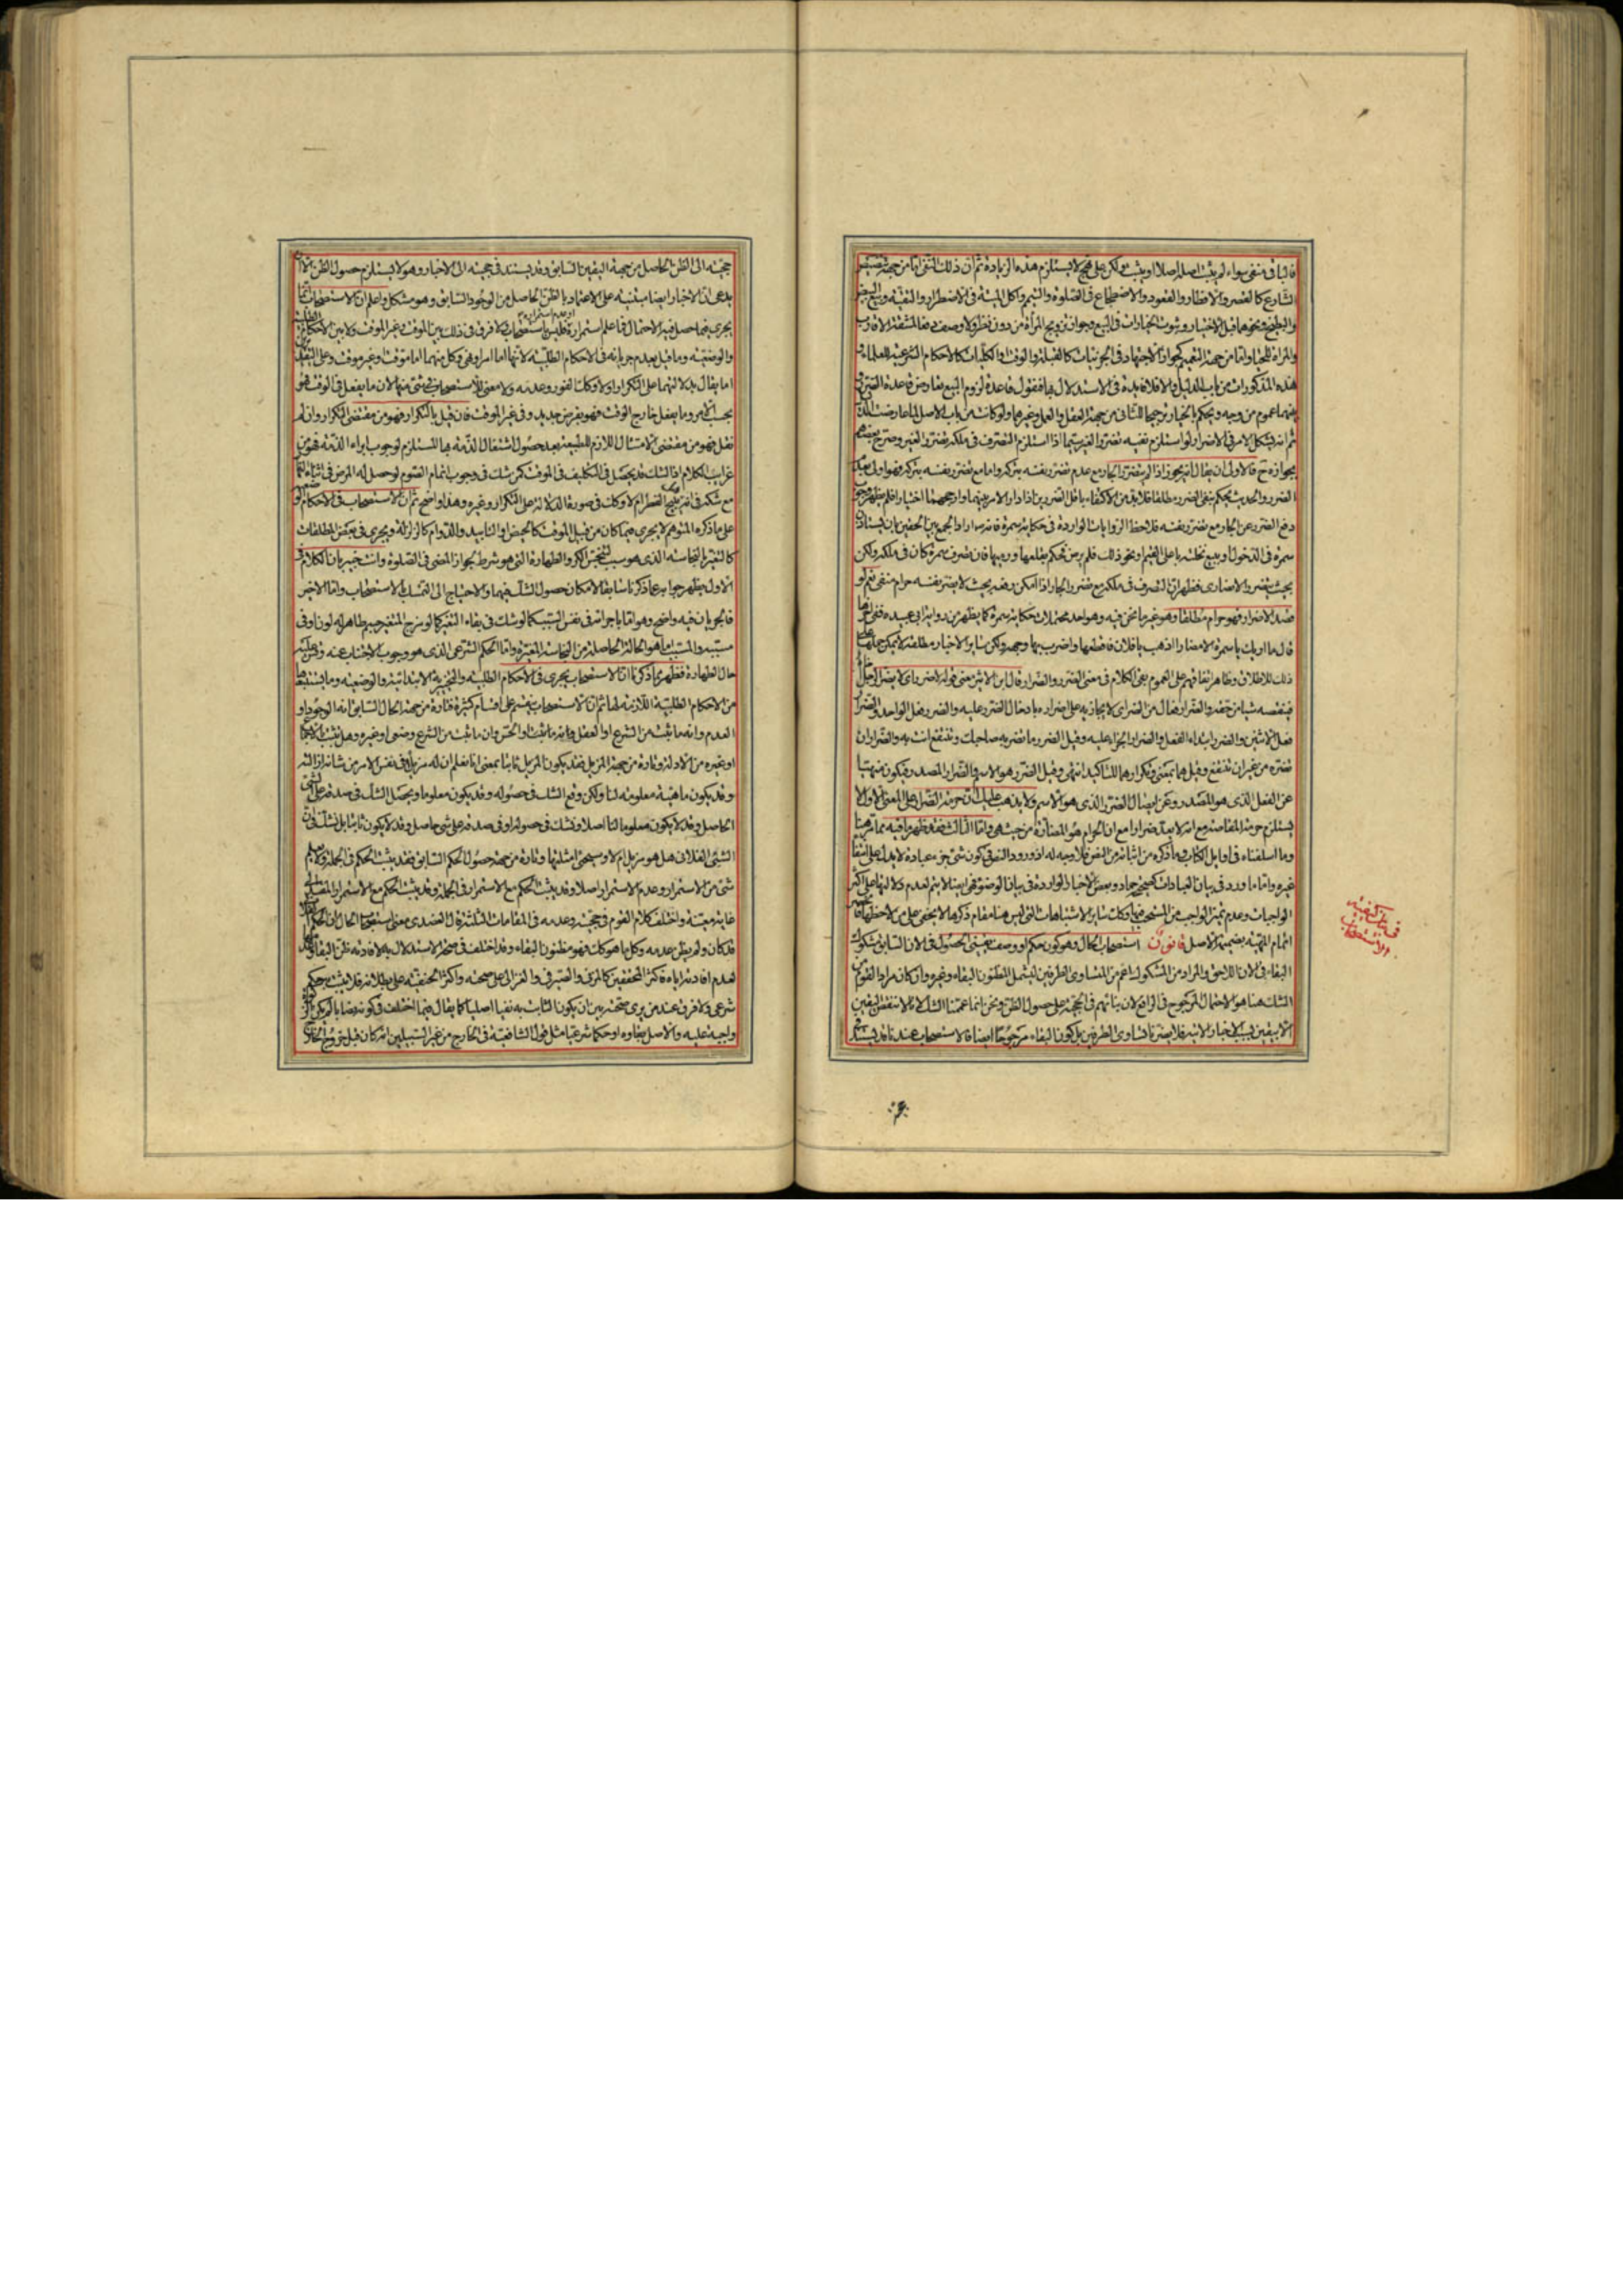 فالباقی منفی سواء لم یثبت اصله اصلا او یثبت ولکن علی نهج لا یستلزم هذه الزیادة ثم ان ذلک النفی اما من جهة
الشارع کالقصر والافطار والقعود والاضطجاع فی الصلوة والتیمم واکل المیتة فی الاضطرار والتقیة وبیع
قبل الاختبار وثبوت الخیارات فی البیع وجواز تزویج المراة من دون نظر ولا وصف دفعا لمشقة الاقارب
والمراة للحیاء واما من جهة التعمیم کجواز الاجتهاد فی الجزئیات کالقبلة والوقت والکلیات کالاحکام الشرعیة للعلماء و
هذه المذکورات من باب الدلیل والا فلا فایدة فی الاستدلال بها فنقول قاعدة لزوم البیع تعارض قاعدة الضرر و
بینهما عموم من وجه ویحکم بالخیار ترجیحا للثانی من جهة العقل والعمل وغیرهما ولو کانت من باب الاصل لما عارضت الدلیل
ثم انه یشکل الامر فی الاضرار لو استلزم نفیه تضرر الغیر سیما اذا استلزم التصرف فی ملکه تضرر الغیر وصرح بعضهم
بجوازه ح فالاولی ان یقال انه یجوز اذا لم یتضرر الجار مع عدم تضرر نفسه بترکه واما مع تضرر نفسه بترکه فهو اولی
الضرر والحدیث یحکم بنفی الضرر مطلقا فلابد من الاکتفاء باقل الضررین اذا دار الامر بینهما وارجحهما اختیارا فلم یظهر وجوب
دفع الضرر عن الجار مع تضرر نفسه فلاحظ الروایات الواردة فی حکایة سمرة فانه ص اراد الجمع بین الحقین بان یستاذن
سمرة فی الدخول او یبیع نخلته باعلی القیم ونحو ذلک فلم یرض فحکم بقلعها ورمیها فان تصرف سمرة کان فی ملکه ولکن
بحیث یتضرر الانصاری فظهر ان التصرف فی ملکه مع ضرر الجار اذا امکن رفعه بحیث لا یضر نفسه حرام منفی نعم لو
قصد الاضرار فهو حرام مطلقا وهو غیر ما نحن فیه وهو احد محتملات حکایة سمرة کما یظهر من روایة ابی عبیدة ففی اخرها
قال ما اریک یا سمرة الا مضارا اذهب یا فلان فاقطعها واضرب بها وجهه ولکن سایر الاخبار مطلقة لا یمکن حملها علی
ذلک للاطلاق وظاهر اتفاقهم علی العموم بقی الکلام فی معنی الضرر والضرار قال ابن الاثیر معنی قوله لا ضرر ای لا یضر الرجل اخاه
فینقصه شیئا من حقه والضرار فعال من الضر ای لا یجازیه علی اضراره بادخال الضرر علیه والضرر فعل الواحد والضرار
فعل الاثنین والضرر ابتداء الفعل والضرار الجزاء علیه وقیل الضرر ما تضر به صاحبک وتنتفع انت به والضرار ان
تضره من غیر ان تنتفع وقیل هما بمعنی وتکرارهما للتاکید انتهی وقیل الضرر هو الاسم والضرار المصدر فیکون منهیا
عن الفعل الذی هو المصدر وعن ایصال الضرر الذی هو الاسم ولا یذهب علیک ان حرمة الضرار علی المعنی الاول لا
یستلزم حرمة المقاصة مع انه لا یبعد ضرارا مع ان الحرام هو المضارة من حیث هی واما الثالث فقد ظهر ما فیه مما مر هنا
وما اسلفناه فی اوایل الکتاب وما ذکره من اثباته من النص فلا وجه له اذ ورود النص فی کون شیء جزء عبادة لا یدل علی انتفاء
غیره واما ما ورد فی بیان العبادات کصحیحة حماد وبعض الاخبار الواردة فی بیان الوضوء فهی ایضا لا یتم لعدم دلالتها علی اکثر
الواجبات وعدم تمیز الواجب من المستحب فیها وکذلک سایر الاشتباهات التی لیس هنا مقام ذکرها لا یخفی علی من لاحظها
اتمام المهیة بضمیمة الاصل قانون استصحاب الحال وهو کون حکم او وصف یقینی الحصول فی الان السابق مشکوک
البقاء فی الان اللاحق والمراد من المشکوک اعم من المتساوی الطرفین لیشمل المظنون البقاء وغیره وان کان مراد القوم من
الشک هنا هو الاحتمال المرجوح فی الواقع لان بنائهم فی الحجیة علی حصول الظن ونحن انما عممنا الشک لانه لا ینقض الیقین
الا بیقین بسبب الاخبار الاتیة فلا یضرنا تساوی الطرفین بل کون البقاء مرجوحا ایضا فالاستصحاب عندنا قد یستند
حجیته الی الظن الحاصل من جهة الیقین السابق وقد یستند فی حجیته الی الاخبار وهو لا یستلزم حصول الظن الا ان
یدعی ان الاخبار ایضا مبتنیة علی الاعتماد بالظن الحاصل من الوجود السابق وهو مشکل واعلم ان الاستصحاب انما
یجری فیما حصل فیه الاحتمال فما علم استمراره فلیس باستصحاب ولا فرق فی ذلک بین الموقت وغیر الموقت ولا بین الاحکام الطلبیة
والوضعیة وما قیل بعدم جریانه فی الاحکام الطلبیة لانها اما امر او نهی وکل منهما اما موقت وغیر موقت وعلی التقدیرین
اما یقال بدلالتهما علی التکرار اولا وکذلک الفور وعدمه ولا معنی للاستصحاب فی شیء منها لان ما یفعل فی الوقت فهو
بحسب الامر وما یفعل خارج الوقت فهو بفرض جدید وفی غیر الموقت فان قیل بالتکرار فهو من مقتضی التکرار وان لم
نقل فهو من مقتضی الامتثال اللازم للطبیعة بعد حصول اشتغال الذمة بها المستلزم لوجوب ابراء الذمة فهو من
غرایب الکلام اذ الشک قد یحصل فی التکلیف فی الموقت کمن شک فی وجوب اتمام الصوم لو حصل له المرض فی اثناء النهار
مع شکه فی انه یبیح الفطر ام لا وکذلک فی صورة الدلالة علی التکرار وغیره وهذا واضح ثم ان الاستصحاب فی الاحکام
علی ما ذکره المتوهم لا یجری فیما کان من قبیل الموقت کالحیض او التابید والدوام کالزلزلة ویجری فی بعض المطلقات
کالتغیر بالنجاسة الذی هو سبب لتنجس الکر والطهارة التی هو شرط لجواز المضی فی الصلوة وانت خبیر بان الکلام فی
الاول یظهر جوابه عما ذکرنا سابقا لامکان حصول الشک فیهما والاحتیاج الی التمسک بالاستصحاب واما الاخیر
فالجریان فیه واضح وهو اما باجرائه فی نفس السبب کما لو شک فی بقاء التغیر کما لو مزج المتغیر بجسم طاهر له لون او فی
مسببه والمسبب اما هو الحالة الحاصلة من النجاسة المغیرة واما الحکم الشرعی الذی هو وجوب الاجتناب عنه وقس علیه
حال الطهارة فظهر بما ذکرنا ان الاستصحاب یجری فی الاحکام الطلبیة والتخییریة الابتدائیة والوضعیة وما یستتبعها
من الاحکام الطلبیة اللازمة لها ثم ان الاستصحاب ینقسم علی اقسام کثیرة فتارة من جهة الحال السابق انه الوجود او
العدم وانه ما ثبت من الشرع او العقل وانه مما ثبت او الحس وان ما ثبت من الشرع وضعی او غیره وهل ثبت بالاجماع
او غیره من الادلة وتارة من جهة المزیل فقد یکون المزیل ثابتا بمعنی انا نعلم ان له مزیلا فی نفس الامر من شانه ازالته
وقد یکون ماهیته معلومة لنا ولکن وقع الشک فی حصوله وقد یکون معلوما ویحصل الشک فی صدقه علی الشیء
الحاصل وقد لا یکون معلوما لنا اصلا ونشک فی حصوله او فی صدقه علی شیء حاصل وقد لا یکون ثابتا بل نشک فی ان
الشیء الفلانی هل هو مزیل ام لا وسیجیء امثلتها وتارة من جهة حصول الحکم السابق فقد یثبت الحکم فی الجملة ولا یعلم
شیء من الاستمرار وعدم الاستمرار اصلا وقد یثبت الحکم مع الاستمرار فی الجملة وقد یثبت الحکم مع الاستمرار المقید الی
غایة معینة واختلف کلام القوم فی حجیته وعدمه فی المقامات الثلثة قال العضدی معنی استصحاب الحال ان الحکم الفلانی
قد کان ولم یظن عدمه وکل ما هو کذلک فهو مظنون البقاء وقد اختلف فی صحة الاستدلال به لافادته ظن البقاء وعدمها
لعدم افادته ایاه فاکثر المحققین کالمزنی والصیرفی والغزالی علی صحته واکثر الحنفیة علی بطلانه فلا یثبت به حکم
شرعی ولا فرق عند من یری صحته بین ان یکون الثابت به نفیا اصلیا کما یقال فیما اختلف فی کونه نصابا لم یکن الزکوة
واجبة علیه والاصل بقاؤه او حکما شرعیا مثل قول الشافعیة فی الخارج من غیر السبیلین انه کان قبل خروج الخارج